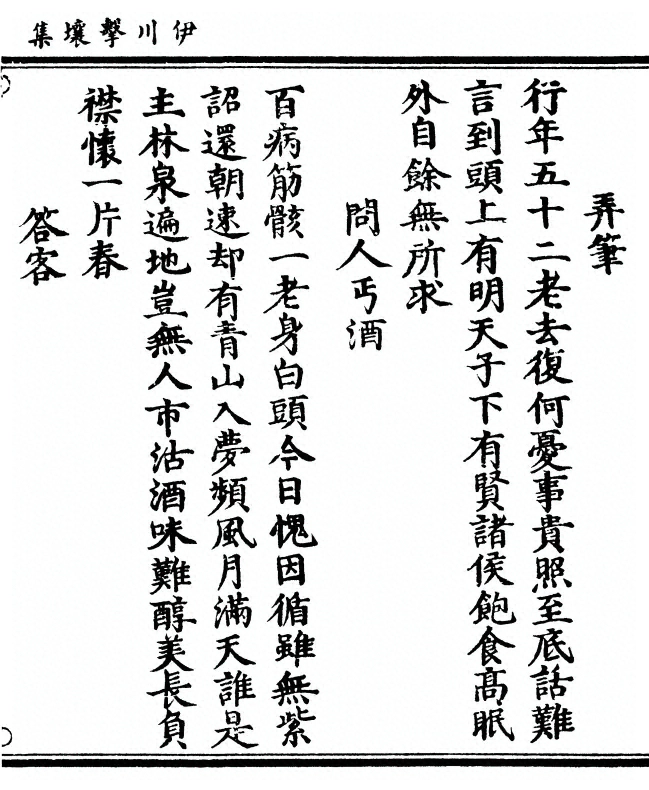 伊川擊壤集
弄筆
行年五十二老去復何憂事貴照至底話難
言到頭上有明天子下有賢諸侯飽食高眠
外自餘無所求
問人丐酒
百病筋骸一老身白頭今日愧因循雖無紫
詔還朝速却有青山入夢頻風月滿天誰是
主林泉遍地豈無人市沽酒味難醇美長負
襟懷一片春
答客